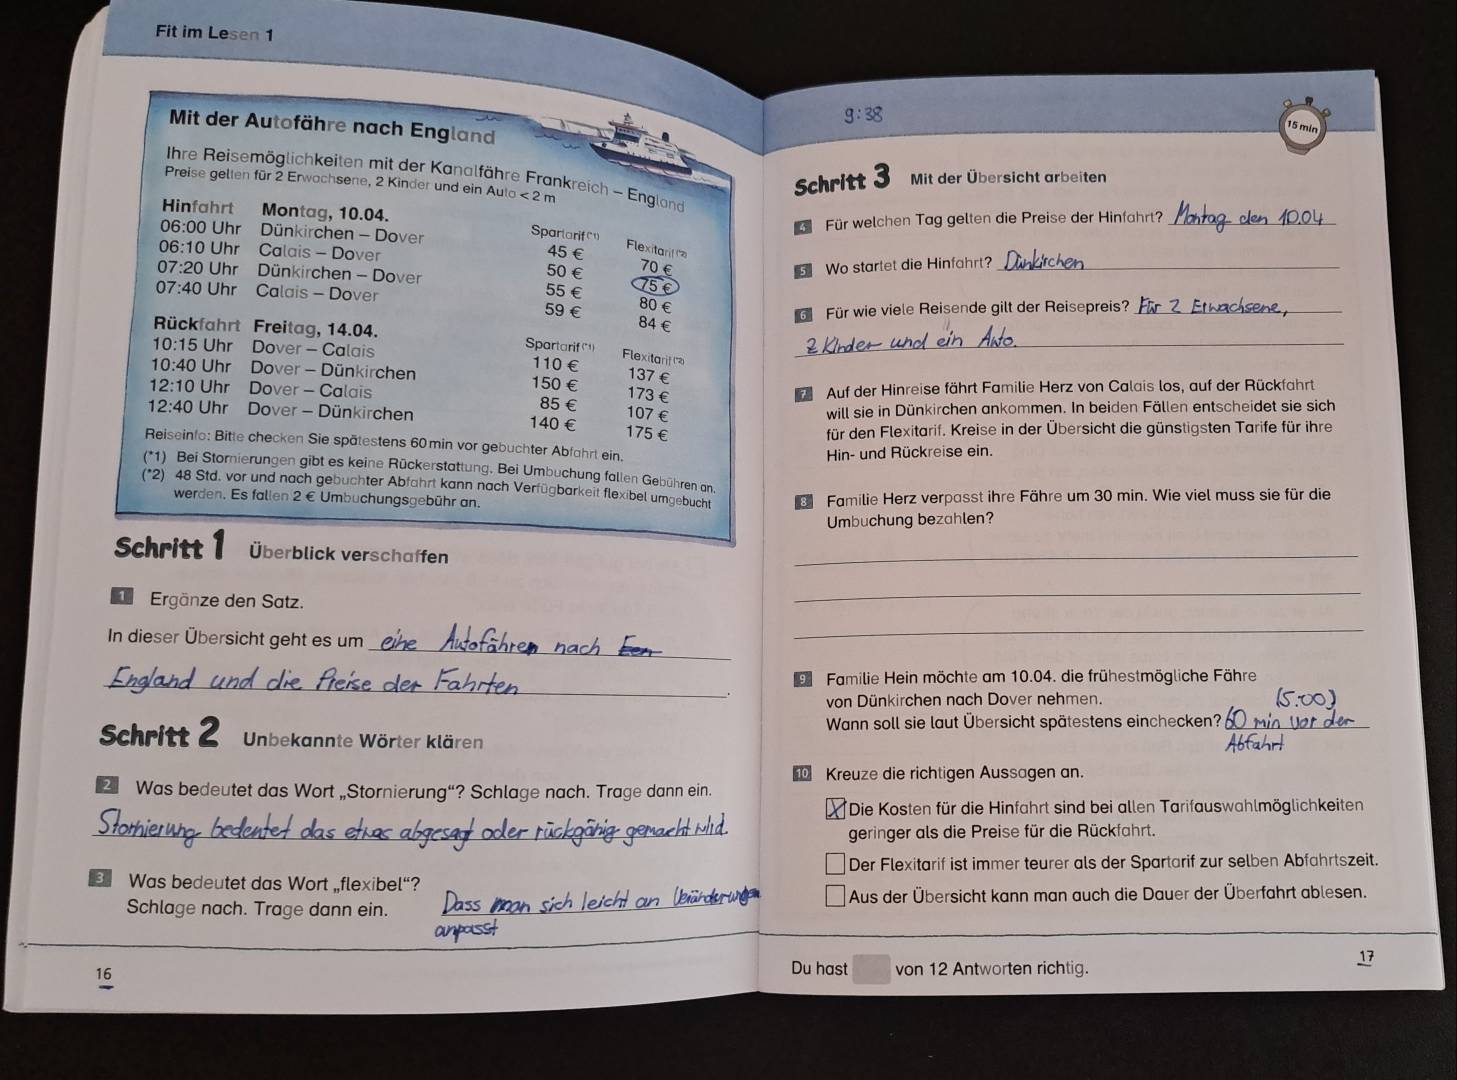 Fit im Lesen 1
Mit der Autofähre nach England
Ihre Reisemöglichkeiten mit der Kanalfähre Frankreich – England
Preise gelten für 2 Erwachsene, 2 Kinder und ein Auto < 2 m
Hinfahrt Montag, 10.04. Spartarif (*1) Flexitarif (*2)
06:00 Uhr Dünkirchen – Dover 45 € 70 €
06:10 Uhr Calais – Dover 50 € 75 €
07:20 Uhr Dünkirchen – Dover 55 € 80 €
07:40 Uhr Calais – Dover 59 € 84 €
Rückfahrt Freitag, 14.04. Spartarif (*1) Flexitarif (*2)
10:15 Uhr Dover – Calais 110 € 137 €
10:40 Uhr Dover – Dünkirchen 150 € 173 €
12:10 Uhr Dover – Calais 85 € 107 €
12:40 Uhr Dover – Dünkirchen 140 € 175 €
Reiseinfo: Bitte checken Sie spätestens 60 min vor gebuchter Abfahrt ein.
(*1) Bei Stornierungen gibt es keine Rückerstattung. Bei Umbuchung fallen Gebühren an.
(*2) 48 Std. vor und nach gebuchter Abfahrt kann nach Verfügbarkeit flexibel umgebucht
werden. Es fallen 2 € Umbuchungsgebühr an.
Schritt 1 Überblick verschaffen
1 Ergänze den Satz.
In dieser Übersicht geht es um eine Autofähren nach
England und die Preise der Fahrten.
Schritt 2 Unbekannte Wörter klären
2 Was bedeutet das Wort „Stornierung“? Schlage nach. Trage dann ein.
Stornierung bedeutet das etwas abgesagt oder rückgänig gemacht wird.
3 Was bedeutet das Wort „flexibel“?
Schlage nach. Trage dann ein. Dass man sich leicht an Veränderungen
anpasst
16
9:38
15 min
Schritt 3 Mit der Übersicht arbeiten
4 Für welchen Tag gelten die Preise der Hinfahrt? Montag den 10.04
5 Wo startet die Hinfahrt? Dünkirchen
6 Für wie viele Reisende gilt der Reisepreis? Für 2 Erwachsene,
2 Kinder und ein Auto.
7 Auf der Hinreise fährt Familie Herz von Calais los, auf der Rückfahrt
will sie in Dünkirchen ankommen. In beiden Fällen entscheidet sie sich
für den Flexitarif. Kreise in der Übersicht die günstigsten Tarife für ihre
Hin- und Rückreise ein.
8 Familie Herz verpasst ihre Fähre um 30 min. Wie viel muss sie für die
Umbuchung bezahlen?
9 Familie Hein möchte am 10.04. die frühestmögliche Fähre
von Dünkirchen nach Dover nehmen. (5:00)
Wann soll sie laut Übersicht spätestens einchecken? 60 min vor der
Abfahrt
10 Kreuze die richtigen Aussagen an.
X Die Kosten für die Hinfahrt sind bei allen Tarifauswahlmöglichkeiten
geringer als die Preise für die Rückfahrt.
Der Flexitarif ist immer teurer als der Spartarif zur selben Abfahrtszeit.
Aus der Übersicht kann man auch die Dauer der Überfahrt ablesen.
Du hast von 12 Antworten richtig.
17